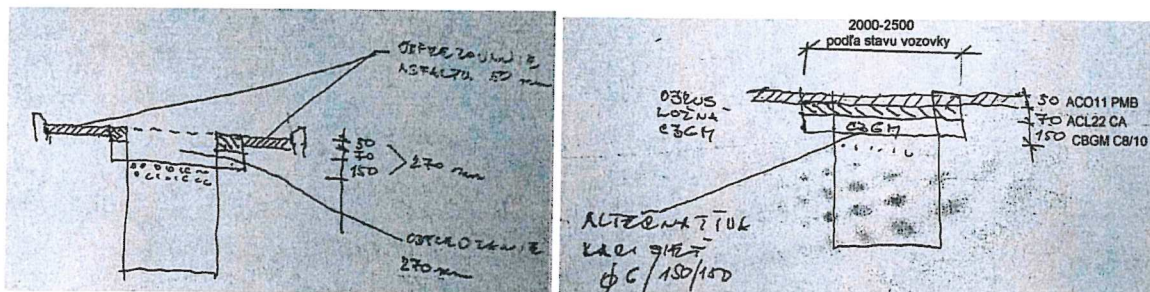 ODFREZOVANIE
ASFALTU 50 mm
50
70
150
270 mm
270 mm
2000-2500
podľa stavu vozovky
OBRUS
LOŽNÁ
CBGM
CBGM
50 ACO11 PMB
70 ACL22 CA
150 CBGM C8/10
ALTERNATÍVA
KARI SIEŤ
ϕ 6/150/150